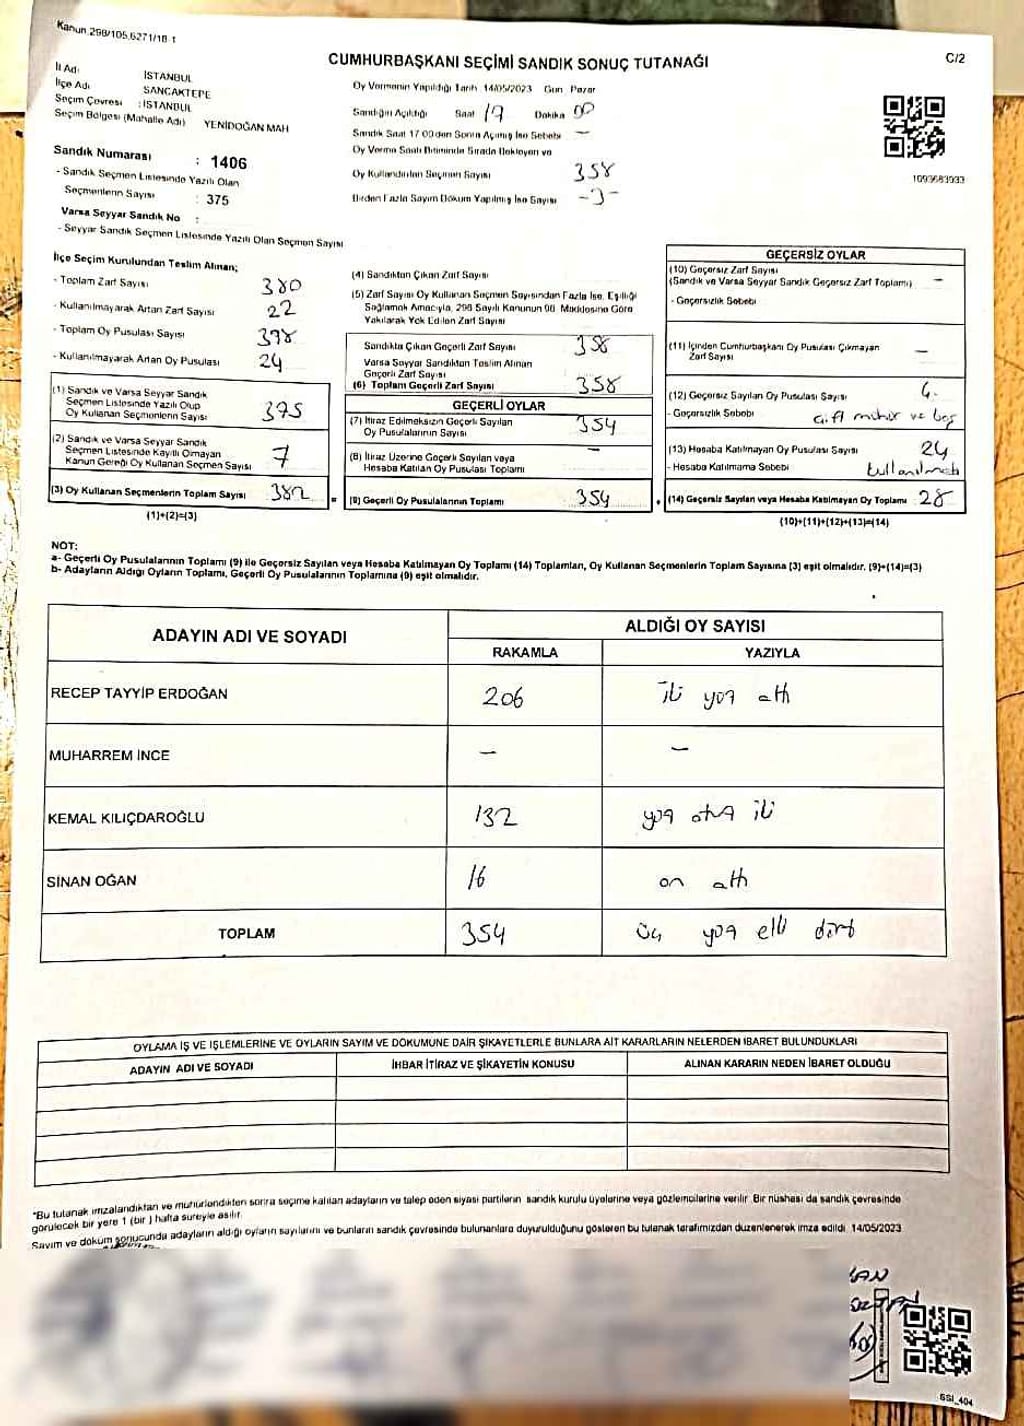 Kanun 298/105,6271/18-1
C/2
CUMHURBAŞKANI SEÇİMİ SANDIK SONUÇ TUTANAĞI
İl Adı İSTANBUL
İlçe Adı SANCAKTEPE
Seçim Çevresi : İSTANBUL
Seçim Bölgesi (Mahalle Adı) YENİDOĞAN MAH
Sandık Numarası : 1406
- Sandık Seçmen Listesinde Yazılı Olan
Seçmenlerin Sayısı : 375
Varsa Seyyar Sandık No :
- Seyyar Sandık Seçmen Listesinde Yazılı Olan Seçmen Sayısı
Oy Vermenin Yapıldığı Tarih 14/05/2023 Gün Pazar
Sandığın Açıldığı Saat 17 Dakika 00
Sandık Saat 17 00 den Sonra Açılmış İse Sebebi —
Oy Verme Saati Bitiminde Sırada Bekleyen ve
Oy Kullandırılan Seçmen Sayısı 358
Birden Fazla Sayım Döküm Yapılmış İse Sayısı
1093683933
İlçe Seçim Kurulundan Teslim Alınan;
- Toplam Zarf Sayısı 380
- Kullanılmayarak Artan Zarf Sayısı 22
- Toplam Oy Pusulası Sayısı 398
- Kullanılmayarak Artan Oy Pusulası 24
(1) Sandık ve Varsa Seyyar Sandık
Seçmen Listesinde Yazılı Olup
Oy Kullanan Seçmenlerin Sayısı 375
(2) Sandık ve Varsa Seyyar Sandık
Seçmen Listesinde Kayıtlı Olmayan
Kanun Gereği Oy Kullanan Seçmen Sayısı 7
(3) Oy Kullanan Seçmenlerin Toplam Sayısı 382
(1)+(2)=(3)
(4) Sandıktan Çıkan Zarf Sayısı
(5) Zarf Sayısı Oy Kullanan Seçmen Sayısından Fazla İse, Eşitliği
Sağlamak Amacıyla, 298 Sayılı Kanunun 98. Maddesine Göre
Yakılarak Yok Edilen Zarf Sayısı
Sandıkta Çıkan Geçerli Zarf Sayısı 358
Varsa Seyyar Sandıktan Teslim Alınan
Geçerli Zarf Sayısı
(6) Toplam Geçerli Zarf Sayısı 358
GEÇERLİ OYLAR
(7) İtiraz Edilmeksizin Geçerli Sayılan
Oy Pusulalarının Sayısı 354
(8) İtiraz Üzerine Geçerli Sayılan veya
Hesaba Katılan Oy Pusulası Toplamı —
= (9) Geçerli Oy Pusulalarının Toplamı 354
GEÇERSİZ OYLAR
(10) Geçersiz Zarf Sayısı
(Sandık ve Varsa Seyyar Sandık Geçersiz Zarf Toplamı) —
- Geçersizlik Sebebi
(11) İçinden Cumhurbaşkanı Oy Pusulası Çıkmayan
Zarf Sayısı —
(12) Geçersiz Sayılan Oy Pusulası Sayısı 4
- Geçersizlik Sebebi çift mühür ve boş
(13) Hesaba Katılmayan Oy Pusulası Sayısı 24
- Hesaba Katılmama Sebebi
+ (14) Geçersiz Sayılan veya Hesaba Katılmayan Oy Toplamı 28
(10)+(11)+(12)+(13)=(14)
NOT:
a- Geçerli Oy Pusulalarının Toplamı (9) ile Geçersiz Sayılan veya Hesaba Katılmayan Oy Toplamı (14) Toplamları, Oy Kullanan Seçmenlerin Toplam Sayısına (3) eşit olmalıdır. (9)+(14)=(3)
b- Adayların Aldığı Oyların Toplamı, Geçerli Oy Pusulalarının Toplamına (9) eşit olmalıdır.
ADAYIN ADI VE SOYADI
ALDIĞI OY SAYISI
RAKAMLA YAZIYLA
RECEP TAYYİP ERDOĞAN 206 iki yüz altı
MUHARREM İNCE — —
KEMAL KILIÇDAROĞLU 132 yüz otuz iki
SİNAN OĞAN 16 on altı
TOPLAM 354 üç yüz elli dört
OYLAMA İŞ VE İŞLEMLERİNE VE OYLARIN SAYIM VE DÖKÜMÜNE DAİR ŞİKAYETLERLE BUNLARA AİT KARARLARIN NELERDEN İBARET BULUNDUKLARI
ADAYIN ADI VE SOYADI İHBAR İTİRAZ VE ŞİKAYETİN KONUSU ALINAN KARARIN NEDEN İBARET OLDUĞU
*Bu tutanak imzalandıktan ve mühürlendikten sonra seçime katılan adayların ve talep eden siyasi partilerin sandık kurulu üyelerine veya gözlemcilerine verilir. Bir nüshası da sandık çevresinde
görülecek bir yere 1 (bir) hafta süreyle asılır.
Sayım ve döküm sonucunda adayların aldığı oyların sayılarını ve bunların sandık çevresinde bulunanlara duyurulduğunu gösteren bu tutanak tarafımızdan düzenlenerek imza edildi. 14/05/2023
SSI_404